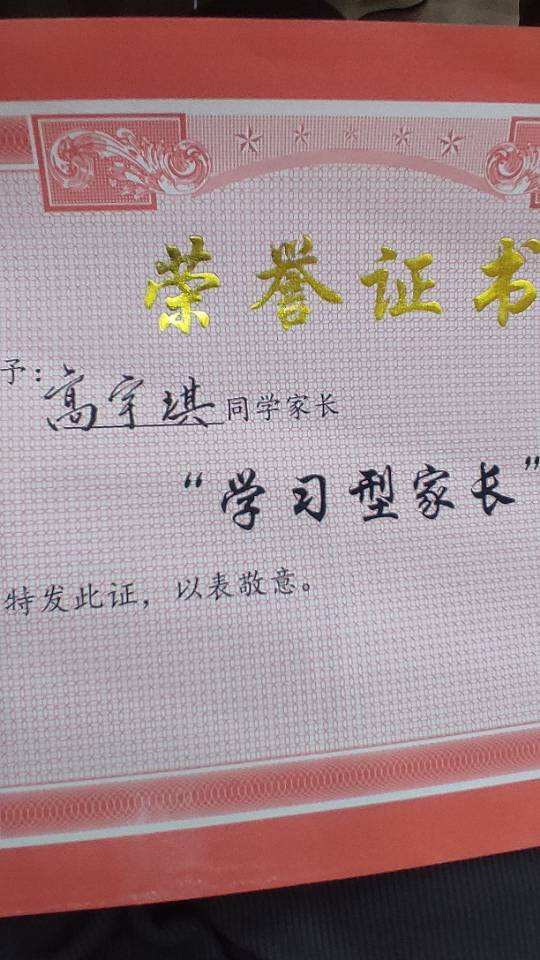 荣誉证书
予：高宇琪同学家长
“学习型家长”
特发此证，以表敬意。